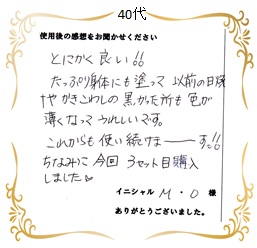 40代
使用後の感想をお聞かせください
とにかく良い!!
たっぷり身体にも塗って以前の日焼
けやかきこわしの黒かった所も色が
薄くなってうれしいです。
これからも使い続けまーーす!!
ちなみに今回3セット目購入
しました♡
イニシャル M・O 様
ありがとうございました。